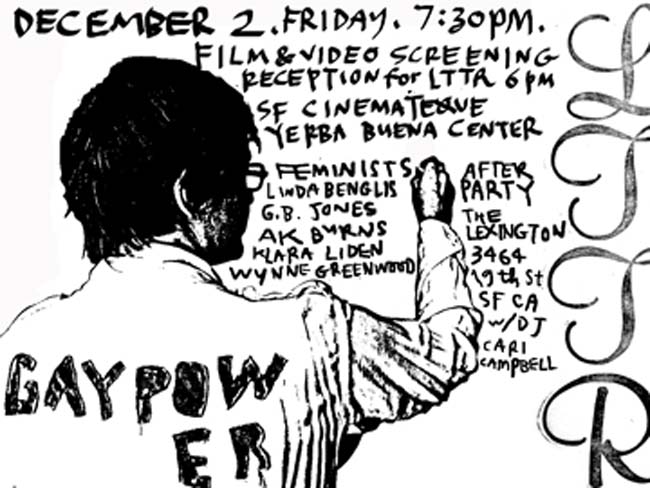 DECEMBER 2. FRIDAY. 7:30PM.
FILM & VIDEO SCREENING
RECEPTION for LTTR 6PM
SF CINEMATEQUE
YERBA BUENA CENTER
FEMINISTS
LINDA BENGLIS
G.B. JONES
AK BURNS
KLARA LIDEN
WYNNE GREENWOOD
AFTER
PARTY
THE
LEXINGTON
3464
19th St
SF CA
W/DJ
CARI
CAMPBELL
GAYPOW
ER
LTTR